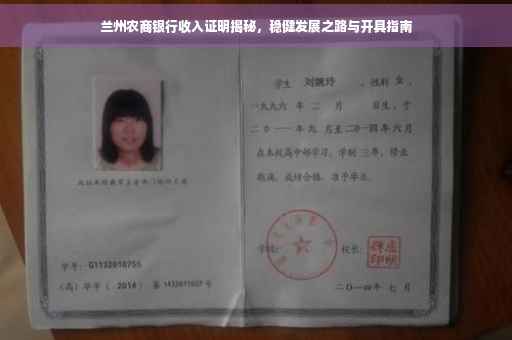 兰州农商银行收入证明揭秘，稳健发展之路与开具指南
学生 刘婉玲 ，性别 女 ，
一九九六 年 二 月 日生，于
二〇一一年九 月至二〇一四年六月
在本校高中部学习，学制 三年，修业
期满，成绩合格，准予毕业。
学校： 校长：
学号：G1132010755
（高）毕字（ 2014 ）第 1432011027 号
二〇一四年 七 月